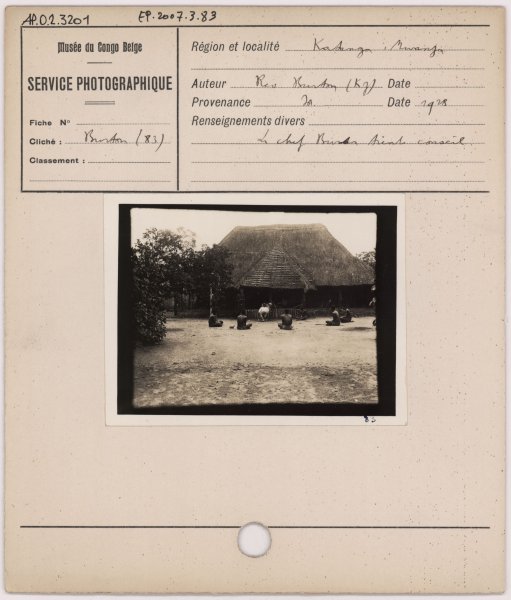 AP.0.2.3201 EP.2007.3.83
Musée du Congo Belge
SERVICE PHOTOGRAPHIQUE
Fiche N°
Cliché : Burton (83)
Classement :
Région et localité Katanga, Mwanza
Auteur Rev Burton Date
Provenance Date 1928
Renseignements divers
Le chef tient conseil
83